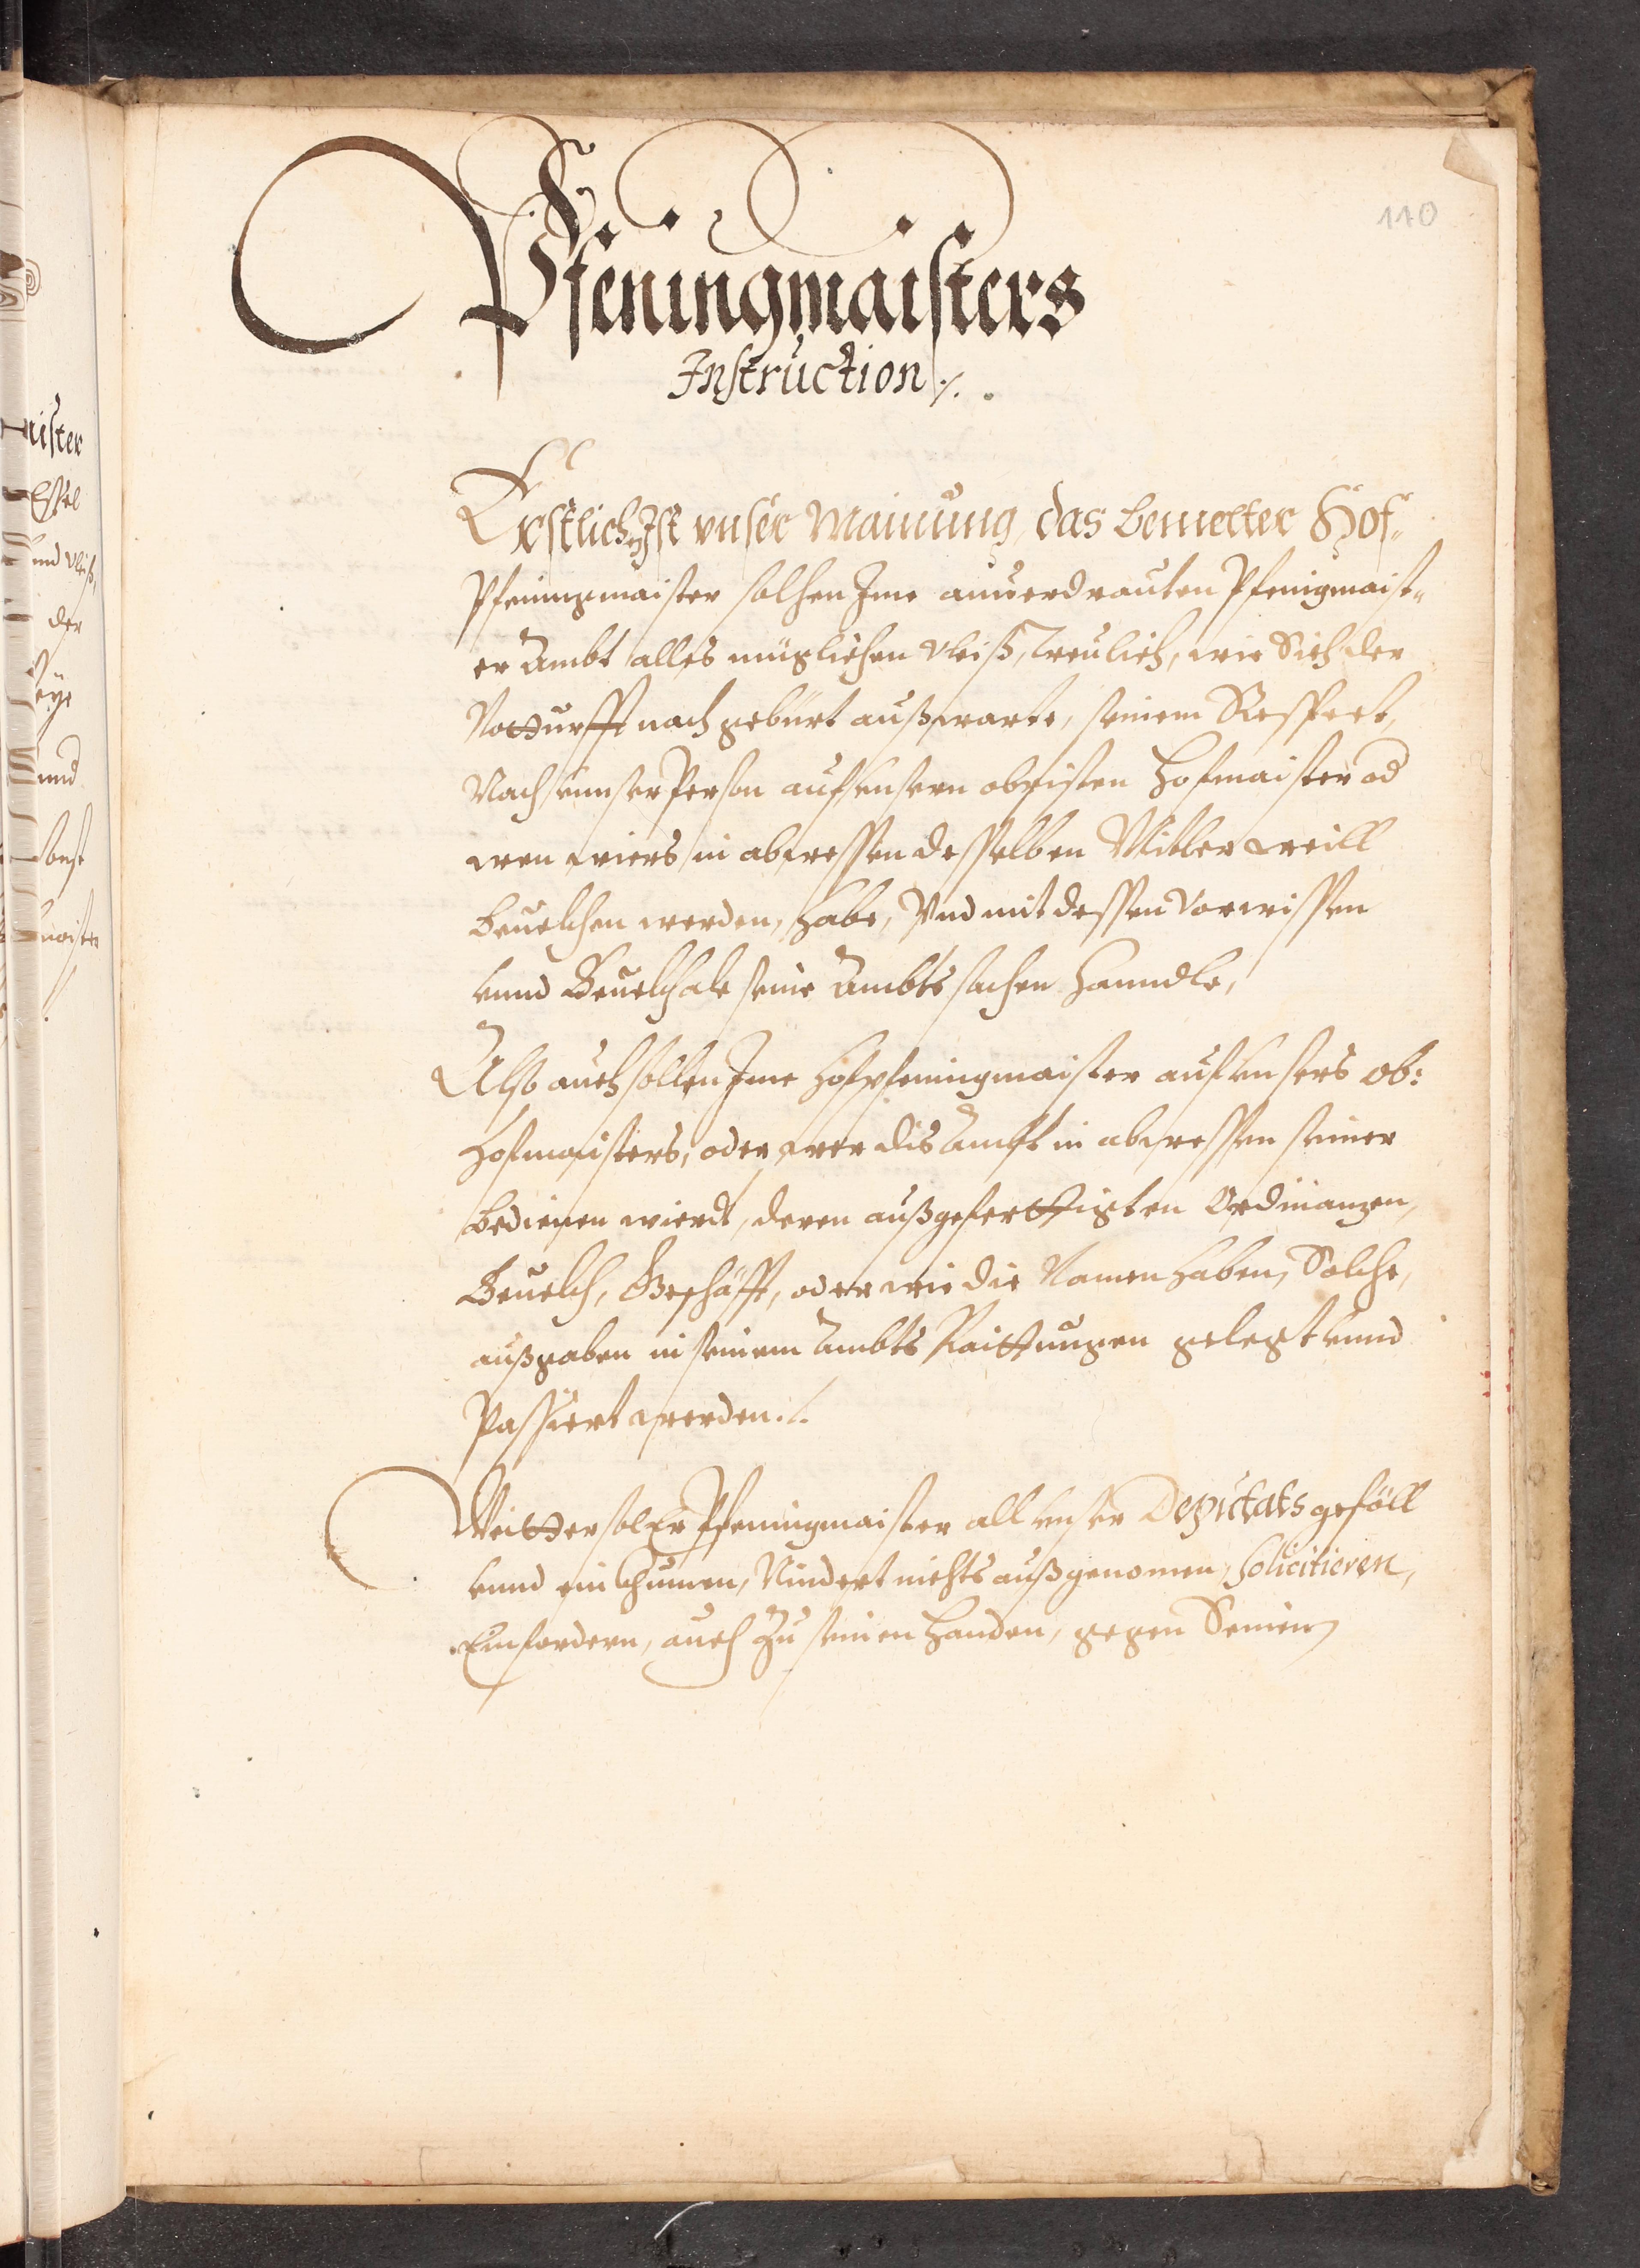 110
Pfeningmaisters
Instruction ./.
Erstlich, Ist vnser Mainung, das bemelter Hof-
Pfeningmaister solchen Ime anuerdrauten Pfenigmaist-
er Ambt alles müglichen vleiß, treulich, wie Sich der
Notturfft nach gebürt außwarte, seinem Respect,
Nach vnnser Person auf vnsern obristen Hofmaister od
wen wiers in abwessen desselben Mitler weill
beuelchen werden, habe, Vnd mit dessen Vorwissen
vnnd Beuelch ale seine Ambts sachen hanndle,
Also auch sollen Ime hofpfeningmaister auf vnsers ob:
hofmaisters, oder wer dis Ambt in abwessen seiner
bedienen wierdt, deren außgeferttigten Ordinanzen,
Beuelch, Geschäfft, oder wie die Namen haben, Solche,
außgaben in seinem Ambts Raittungen gelegt vnnd
Passiert werden ./.
Weitter sol Er Pfeningmaister all vnser Deputats gefäll
vnnd ein khumen, Nindert nichts außgenomen, Solicitieren,
Einfordern, auch Zu seinen Handen, gegen Seinen
aister
vnd vleiß,
der
vnd
maister